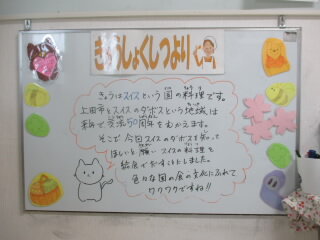 きゅうしょくしつより
きょうはスイスという国の料理です。
上田市とスイスのダボスという地域は
来年で交流50周年をむかえます。
そこで今回スイスのダボスを知って
ほしいと願いスイスの料理を
給食でだすことにしました。
色々な国の食の文化にふれて
ワクワクですね!!